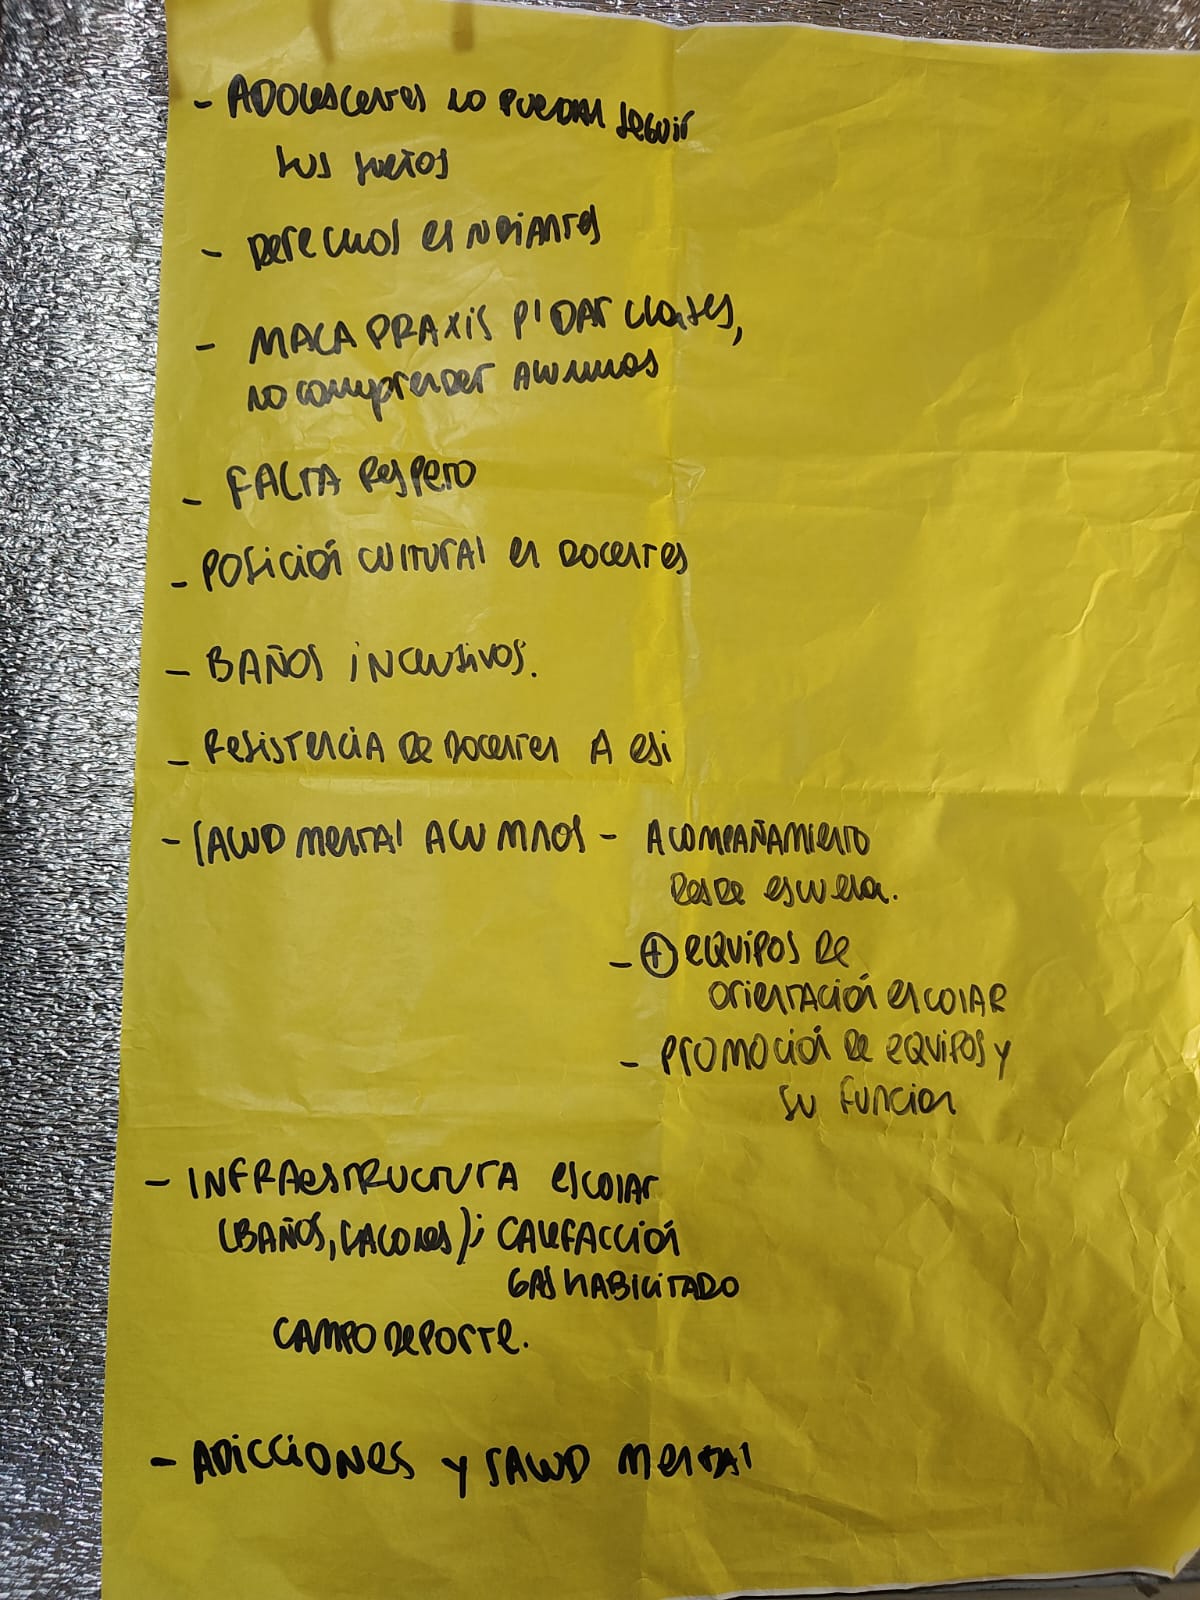 - ADOLESCENTES NO PUEDAN SEGUIR
SUS SUEÑOS
- DERECHOS ESTUDIANTES
- MALA PRAXIS P' DAR CLASES,
NO COMPRENDER ALUMNOS
- FALTA RESPETO
- POSICIÓN CULTURAL EN DOCENTES
- BAÑOS INCLUSIVOS.
- RESISTENCIA DE DOCENTES A ESI
- SALUD MENTAL ALUMNOS - ACOMPAÑAMIENTO
DESDE ESCUELA.
- + EQUIPOS DE
ORIENTACIÓN ESCOLAR
- PROMOCIÓN DE EQUIPOS Y
SU FUNCION
- INFRAESTRUCTURA ESCOLAR
(BAÑOS, SALONES); CALEFACCIÓN
GAS HABILITADO
CAMPO DEPORTE.
- ADICCIONES Y SALUD MENTAL